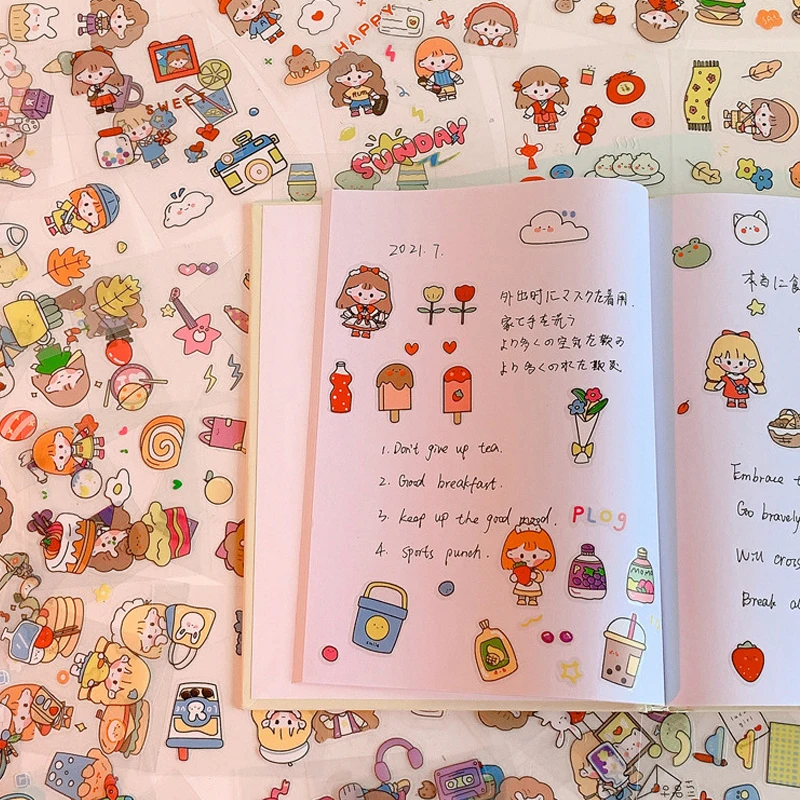 HAPPY
SWEET
SUNDAY
2021.7.
外出時にマスクを着用.
家で手を洗う
より多くの空気を飲る
より多くのれた飲む
1. Don't give up tea.
2. Good breakfast.
3. keep up the good mood.
4. sports punch.
PLog
MOMO
本当に食
Embrace t
Go bravely
Will cross
Break al
to do
list